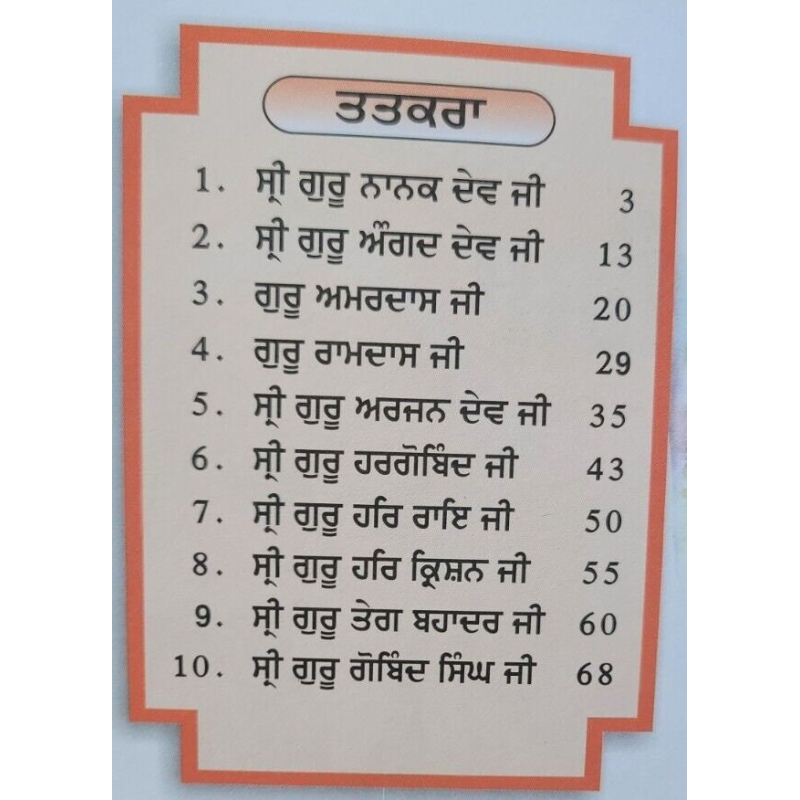 ਤਤਕਰਾ
1. ਸ੍ਰੀ ਗੁਰੂ ਨਾਨਕ ਦੇਵ ਜੀ 3
2. ਸ੍ਰੀ ਗੁਰੂ ਅੰਗਦ ਦੇਵ ਜੀ 13
3. ਗੁਰੂ ਅਮਰਦਾਸ ਜੀ 20
4. ਗੁਰੂ ਰਾਮਦਾਸ ਜੀ 29
5. ਸ੍ਰੀ ਗੁਰੂ ਅਰਜਨ ਦੇਵ ਜੀ 35
6. ਸ੍ਰੀ ਗੁਰੂ ਹਰਗੋਬਿੰਦ ਜੀ 43
7. ਸ੍ਰੀ ਗੁਰੂ ਹਰਿ ਰਾਇ ਜੀ 50
8. ਸ੍ਰੀ ਗੁਰੂ ਹਰਿ ਕ੍ਰਿਸ਼ਨ ਜੀ 55
9. ਸ੍ਰੀ ਗੁਰੂ ਤੇਗ ਬਹਾਦਰ ਜੀ 60
10. ਸ੍ਰੀ ਗੁਰੂ ਗੋਬਿੰਦ ਸਿੰਘ ਜੀ 68